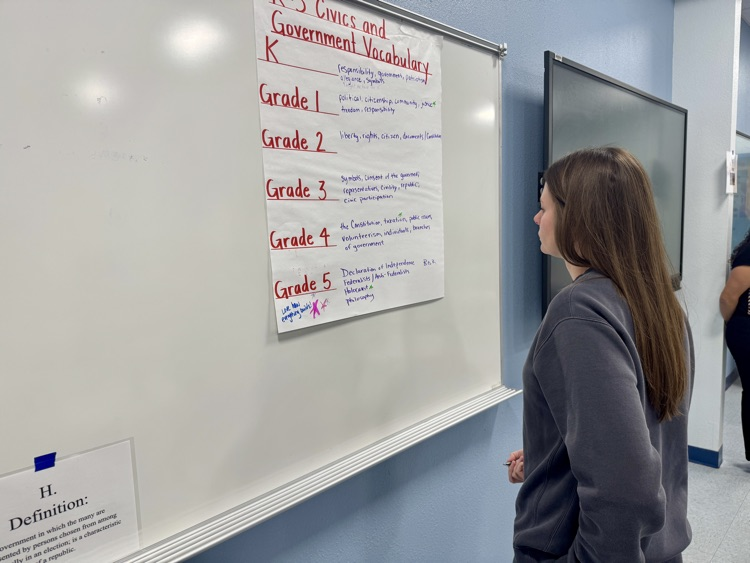 K-5 Civics and
Government Vocabulary
K
responsibility, government, patriotism
symbols
Grade 1
political, citizenship, community, justice
freedom, responsibility
Grade 2
liberty, rights, citizen, documents/Constitution
Grade 3
symbols, consent of the governed
representatives, civility, republic,
civic participation
Grade 4
the Constitution, taxation, public issues,
volunteerism, individuals, branches
of government
Grade 5
Declaration of Independence
Federalists/Anti-Federalists
Holocaust
philosophy
H.
Definition:
overnment in which the many are
ented by persons chosen from among
ally in an election; is a characteristic
of a republic.